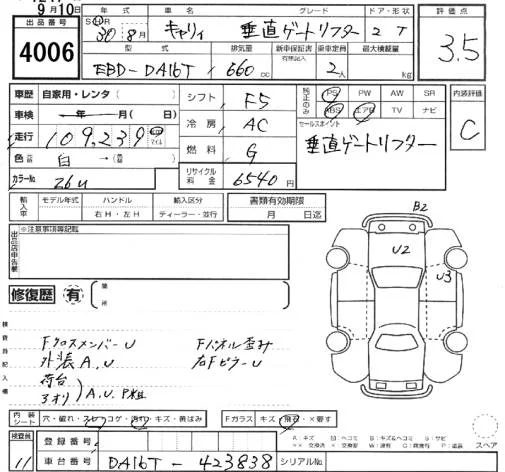 9月10日
出品番号
4006
年式 車名 グレード ドア・形状
S H 30年8月 キャリィ 垂直ゲートリフター 2 T
型式 排気量 新車保証書 有無記入 乗車定員 最大積載量
EBD-DA16T 660cc 2人 kg
評価点
3.5
車歴 自家用・レンタ( )
車検 年 月( 日)
走行 109,239 マイル
色 白 →( 色)
カラーNo. 26U
シフト F5
冷房 AC
燃料 G
リサイクル料金 6540円
純正のみ
PS PW AW SR
ABS エアB TV ナビ
セールスポイント
垂直ゲートリフター
内装評価
C
輸入車 モデル年式 ハンドル 輸入区分
年 右H・左H ディーラー・並行
書類有効期限
月 日迄
出品店申告欄
※注意事項等記載
修復歴 有 箇所
検査員記入欄
Fクロスメンバー U Fパネル歪み
外装 A.U 右Fピラー U
荷台
3オリ A.U.P粗
B2
U2
U3
内装シート 穴・破れ・スレ・コゲ・汚れ・キズ・黄ばみ
Fガラス キズ・飛石・×要す
A:キズ U:凹ヘコミ B:キズ&ヘコミ S:サビ
××:交換済 ×:交換要 W:波有 C:腐食有 P:塗装
スペア
検査員
11
登録番号
車台番号 DA16T-423838 シリアルNo.